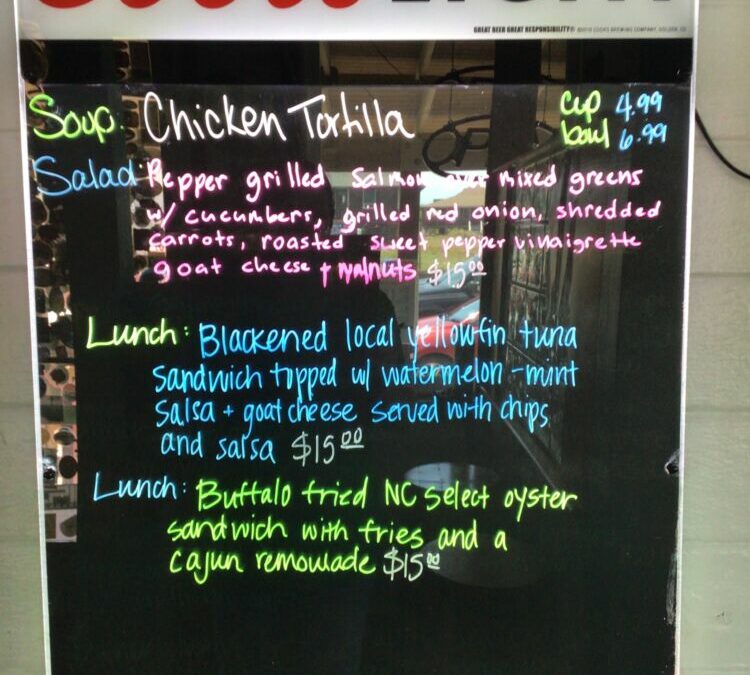 GREAT BEER GREAT RESPONSIBILITY®
Soup: Chicken Tortilla cup 4.99
bowl 6.99
Salad: Pepper grilled Salmon over mixed greens
w/ cucumbers, grilled red onion, shredded
carrots, roasted sweet pepper vinaigrette
goat cheese + walnuts $15.00
Lunch: Blackened local yellowfin tuna
sandwich topped w/ watermelon-mint
salsa + goat cheese served with chips
and salsa $15.00
Lunch: Buffalo fried NC Select oyster
sandwich with fries and a
cajun remoulade $15.00